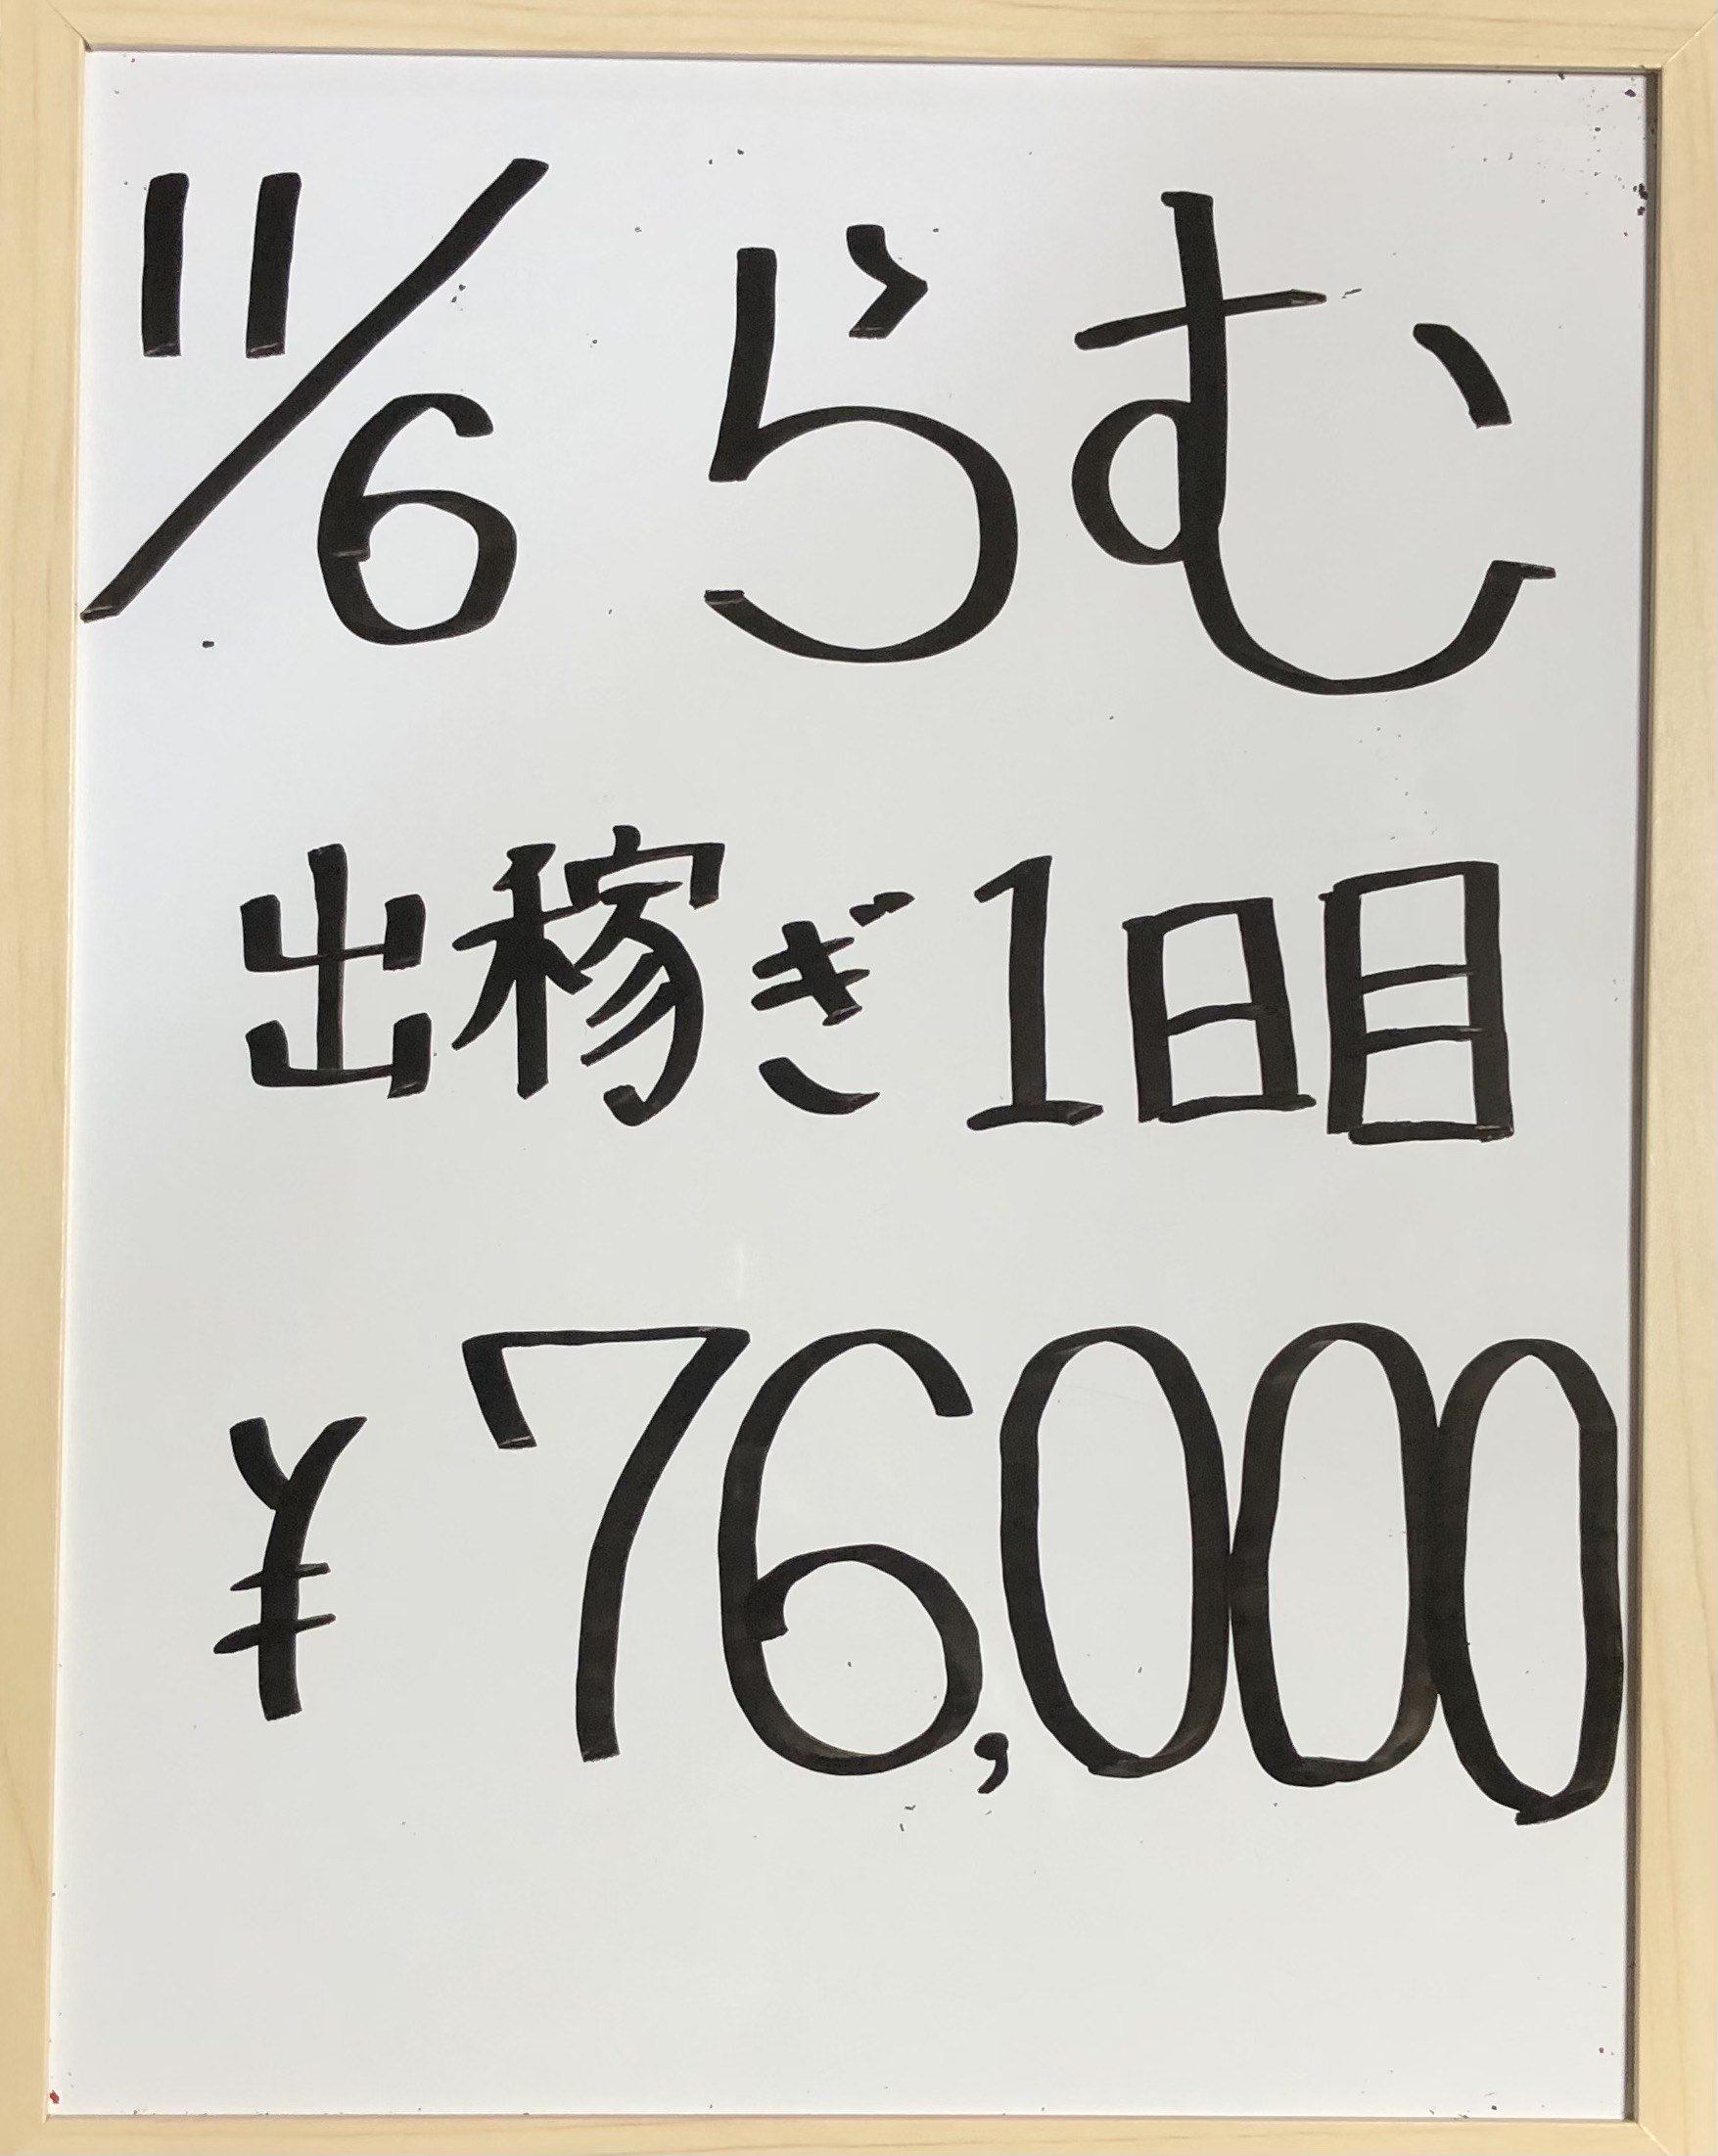 11/6 らむ
出稼ぎ1日目
¥76,000